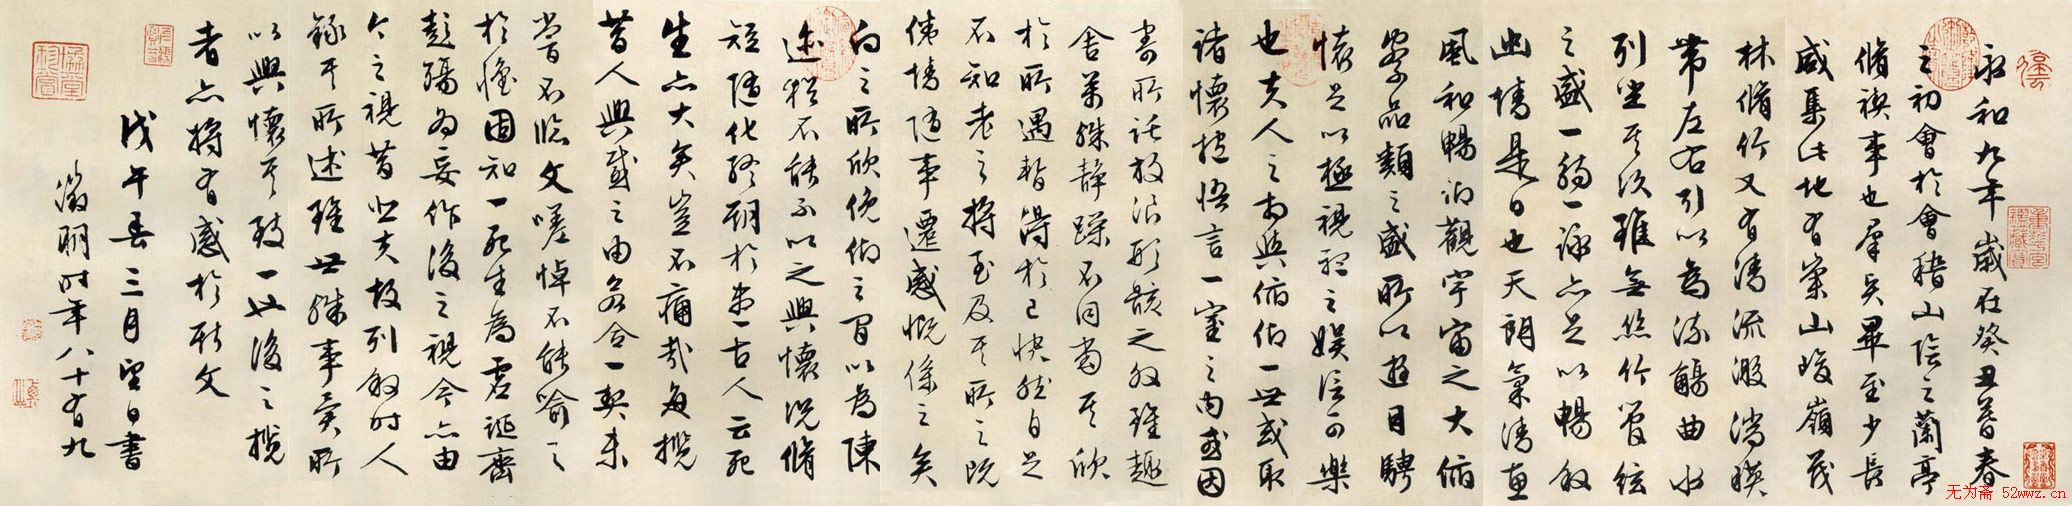 永和九年歲在癸丑暮春
之初會於會稽山陰之蘭亭
脩禊事也羣賢畢至少長
咸集此地有崇山峻嶺茂
林脩竹又有清流激湍暎
帶左右引以為流觴曲水
列坐其次雖無絲竹管絃
之盛一觴一詠亦足以暢敘
幽情是日也天朗氣清惠
風和暢仰觀宇宙之大俯
察品類之盛所以遊目騁
懷足以極視聽之娛信可樂
也夫人之相與俯仰一世或取
諸懷抱悟言一室之內或因
寄所託放浪形骸之外雖趣
舍萬殊靜躁不同當其欣
於所遇暫得於己快然自足
不知老之將至及其所之既
倦情隨事遷感慨係之矣
向之所欣俛仰之間以為陳
迹猶不能不以之興懷況脩
短隨化終期於盡古人云死
生亦大矣豈不痛哉每攬
昔人興感之由若合一契未
嘗不臨文嗟悼不能喻之
於懷固知一死生為虛誕齊
彭殤為妄作後之視今亦由
今之視昔悲夫故列敘時人
錄其所述雖世殊事異所
以興懷其致一也後之攬
者亦將有感於斯文
戊午春三月望日書
徵明時年八十有九
无为斋 52wwz.cn